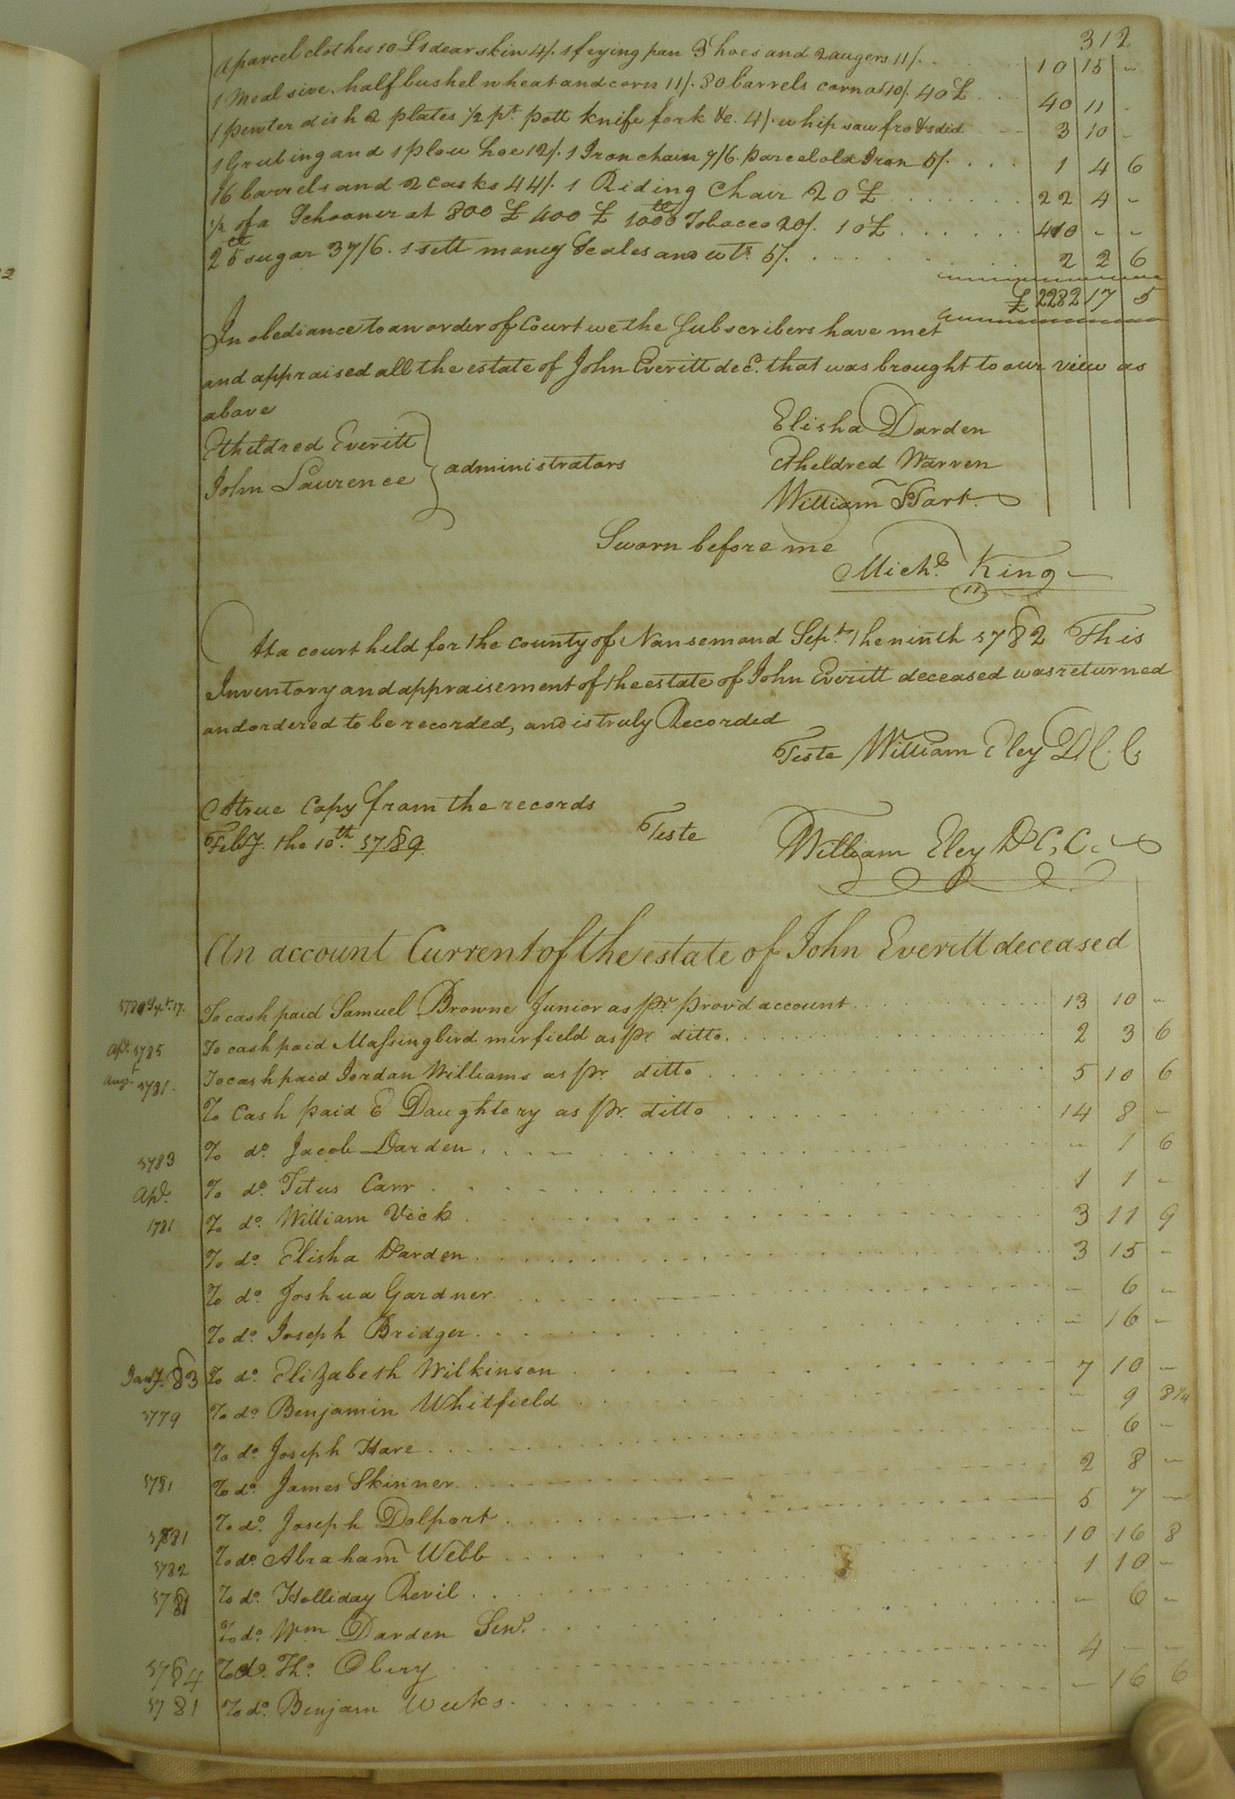 312
A parcel clothes 10 £ 1 dear skin 4/. 1 frying pan 3 hoes and 2 augers 11/. 10 15 -
1 Meal sive, half bushel wheat and corn 11/. 80 barrels corn at 10/. 40 £ 40 11 -
1 pewter dish 2 plates 1/2 pt. pott knife fork &c. 4/. whip saw fro & 3 10 -
1 Grubing and 1 plow hoe 12/. 1 Iron chain 7/6. parcel old Iron 5/. 1 4 6
16 barrels and 2 casks 44/. 1 Riding Chair 20 £ 22 4 -
1/2 of a Schooner at 800 £ 400 £ 1000 Tobacco 20/. 10 £ 410 - -
25 sugar 37/6. 1 sett money Scales and wts. 5/. 2 2 6
£ 2282 17 5
In obediance to an order of Court we the Subscribers have met
and appraised all the estate of John Everitt decd. that was brought to our view as
above
Etheldred Everitt
John Lawrence
administrators
Elisha Darden
Etheldred Warren
William Hart.
Sworn before me
Michl. King
At a court held for the county of Nansemond Sept. the ninth 1782 This
Inventory and appraisement of the estate of John Everitt deceased was returned
and ordered to be recorded, and is truly Recorded
Teste William Eley D C. C
A true Copy from the records
Feby. the 10th. 1789
Teste
William Eley D C, C.
An account Current of the estate of John Everitt deceased
Sept. 17. To cash paid Samuel Browne Junior as pr. prov'd account 13 10 -
Apl. 1785 To cash paid Massingbird mirfield as pr ditto. 2 3 6
Augt. 1781. To cash paid Jordan Williams as pr. ditto 5 10 6
To Cash paid E Daughtery as pr. ditto 14 8 -
1783 To do. Jacob Darden. - 1 6
Apl. To do. Titus Carr 1 1 -
1781 To do. William Vick 3 11 9
To do. Elisha Darden 3 15 -
To do. Joshua Gardner. - 6 -
To do. Joseph Bridger. - 16 -
Jany. 83 To do. Elizabeth Wilkinson 7 10 -
1779 To do. Benjamin Whitfield - 9 8 1/4
To do. Joseph Hare - 6 -
1781 To do. James Skinner 2 8 -
To do. Joseph Dolport 5 7 -
1781 To do. Abraham Webb 10 16 8
1782 To do. Holliday Revil 1 10 -
1781 To do. Wm Darden Senr. - 6 -
1784 To do. Tho. Obery 4 - -
1781 To do. Benjam Weeks. - 16 6